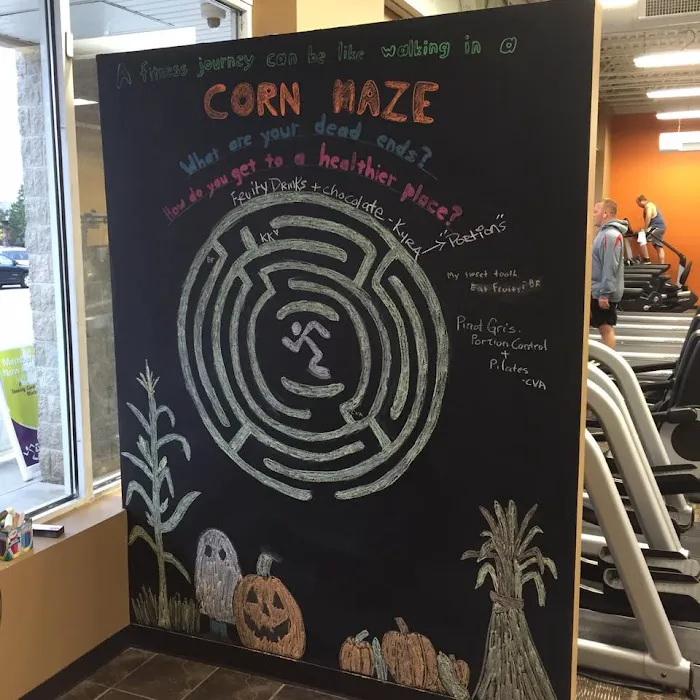 A fitness journey can be like walking in a
CORN MAZE
What are your dead ends?
How do you get to a healthier place?
Fruity Drinks + chocolate - Kyra → "Portions"
KK
BF
My sweet tooth
Eat Fruits! BF
Pinot Gris.
Portion Control
+
Pilates
-CVA
CVA